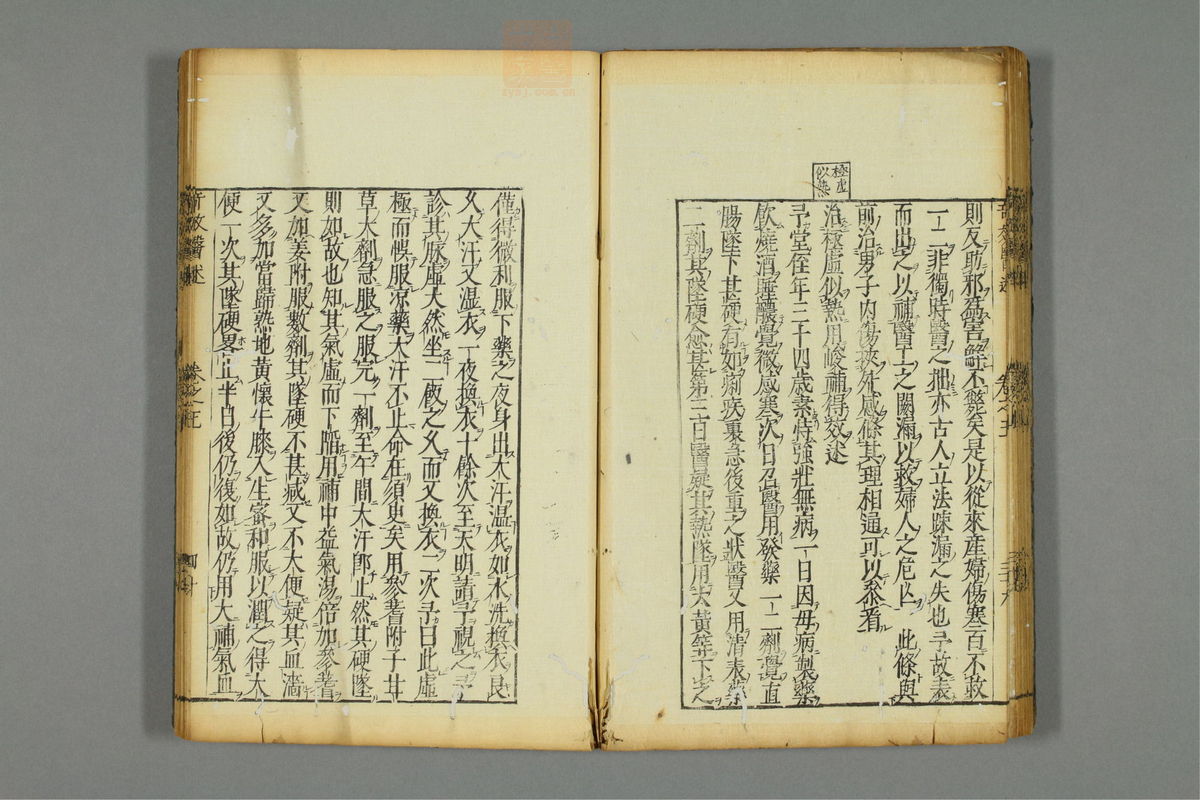 極虛
似熱
則反助邪蒸害解不斃矣是以從來產婦傷寒百不救
一二非獨時醫之拙亦古人立法踈漏之失也予故表
而出之以補醫工之闕漏以救婦人之危亾 此條與
前治男子內傷挾外感條其理相通可以叅看
治極虛似熱用峻補得效述
予堂侄年三十四歲素恃強壯無病一日因母病製藥
飲燒酒睡醒覺微感寒次日召醫用發藥一二劑覺直
腸墜下甚硬有如痢疾裏急後重之狀醫又用清表藥
二劑其墜硬愈甚第三日醫疑其熱墜用大黃等下之
新效醫述
卷之三
僅得微利服下藥之夜身出大汗温衣如水洗換衣良
久大汗又温衣一夜換衣十餘次至天明請予視之予
診其脉虛大然坐二飯之久而又換衣一次予曰此虛
極而悞服凉藥大汗不止命在須臾矣用參耆附子甘
草大劑急服之服完一劑至午間大汗即止然其硬墜
則如故也知其氣虛而下陷用補中益氣湯倍加參耆
又加姜附服數劑其墜硬不甚减又不大便疑其血濇
又多加當歸熟地黃懷牛膝人生蜜和服以潤之得大
便一次其墜硬畧止半日後仍復如故仍用大補氣血